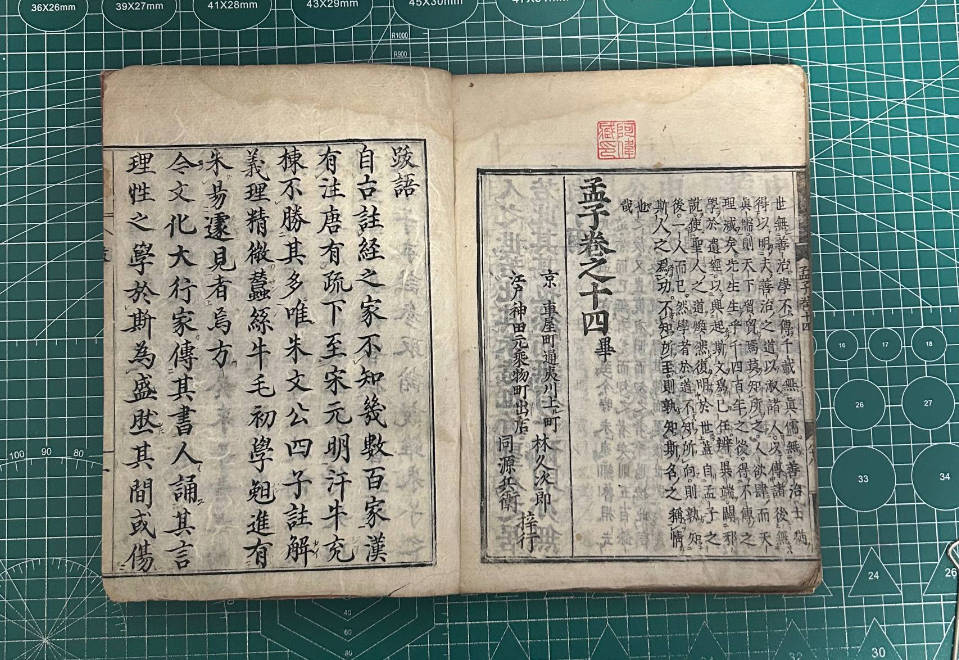 世無善治學不傳千載無眞儒無善治士猶
得以明夫善治之道以淑諸人以傳諸後無
眞儒則天下貿貿焉莫知所之人欲肆而天
理滅矣先生生乎千四百年之後得不傳之
學於遺經以興起斯文爲己任辨異端闢邪
說使聖人之道煥然復明於世蓋自孟子之
後一人而已然學者於道不知所向則孰知
斯人之爲功不知所至則孰知斯名之稱情
也
哉
孟子卷之十四 畢
京 車屋町通夷川上町 林久次郎
江戸神田元乘物町出店 同源兵衛 梓行
跋語
自古註經之家不知幾數百家漢
有注唐有疏下至宋元明汗牛充
棟不勝其多唯朱文公四子註解
義理精微蠶絲牛毛初學飽進有
朱易遽見者焉方
今文化大行家傳其書人誦其言
理性之學於斯為盛然其間或傷
孟子卷十四
36X26mm
39X27mm
41X28mm
43X29mm
45X30mm
R1000
R900
16
17
18
26
27
33
34
24
26
30
100 90 80
40
60